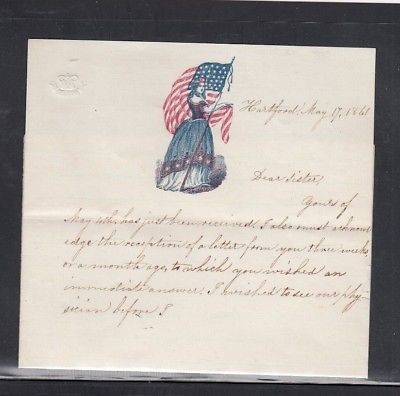 Hartford, May 17, 1861
Dear Sister,
Yours of
May 4th has just been received. I also must acknowl
edge the reception of a letter from you three weeks
or a month ago, to which you wished an
immediate answer. I wished to see our phy-
sician before I